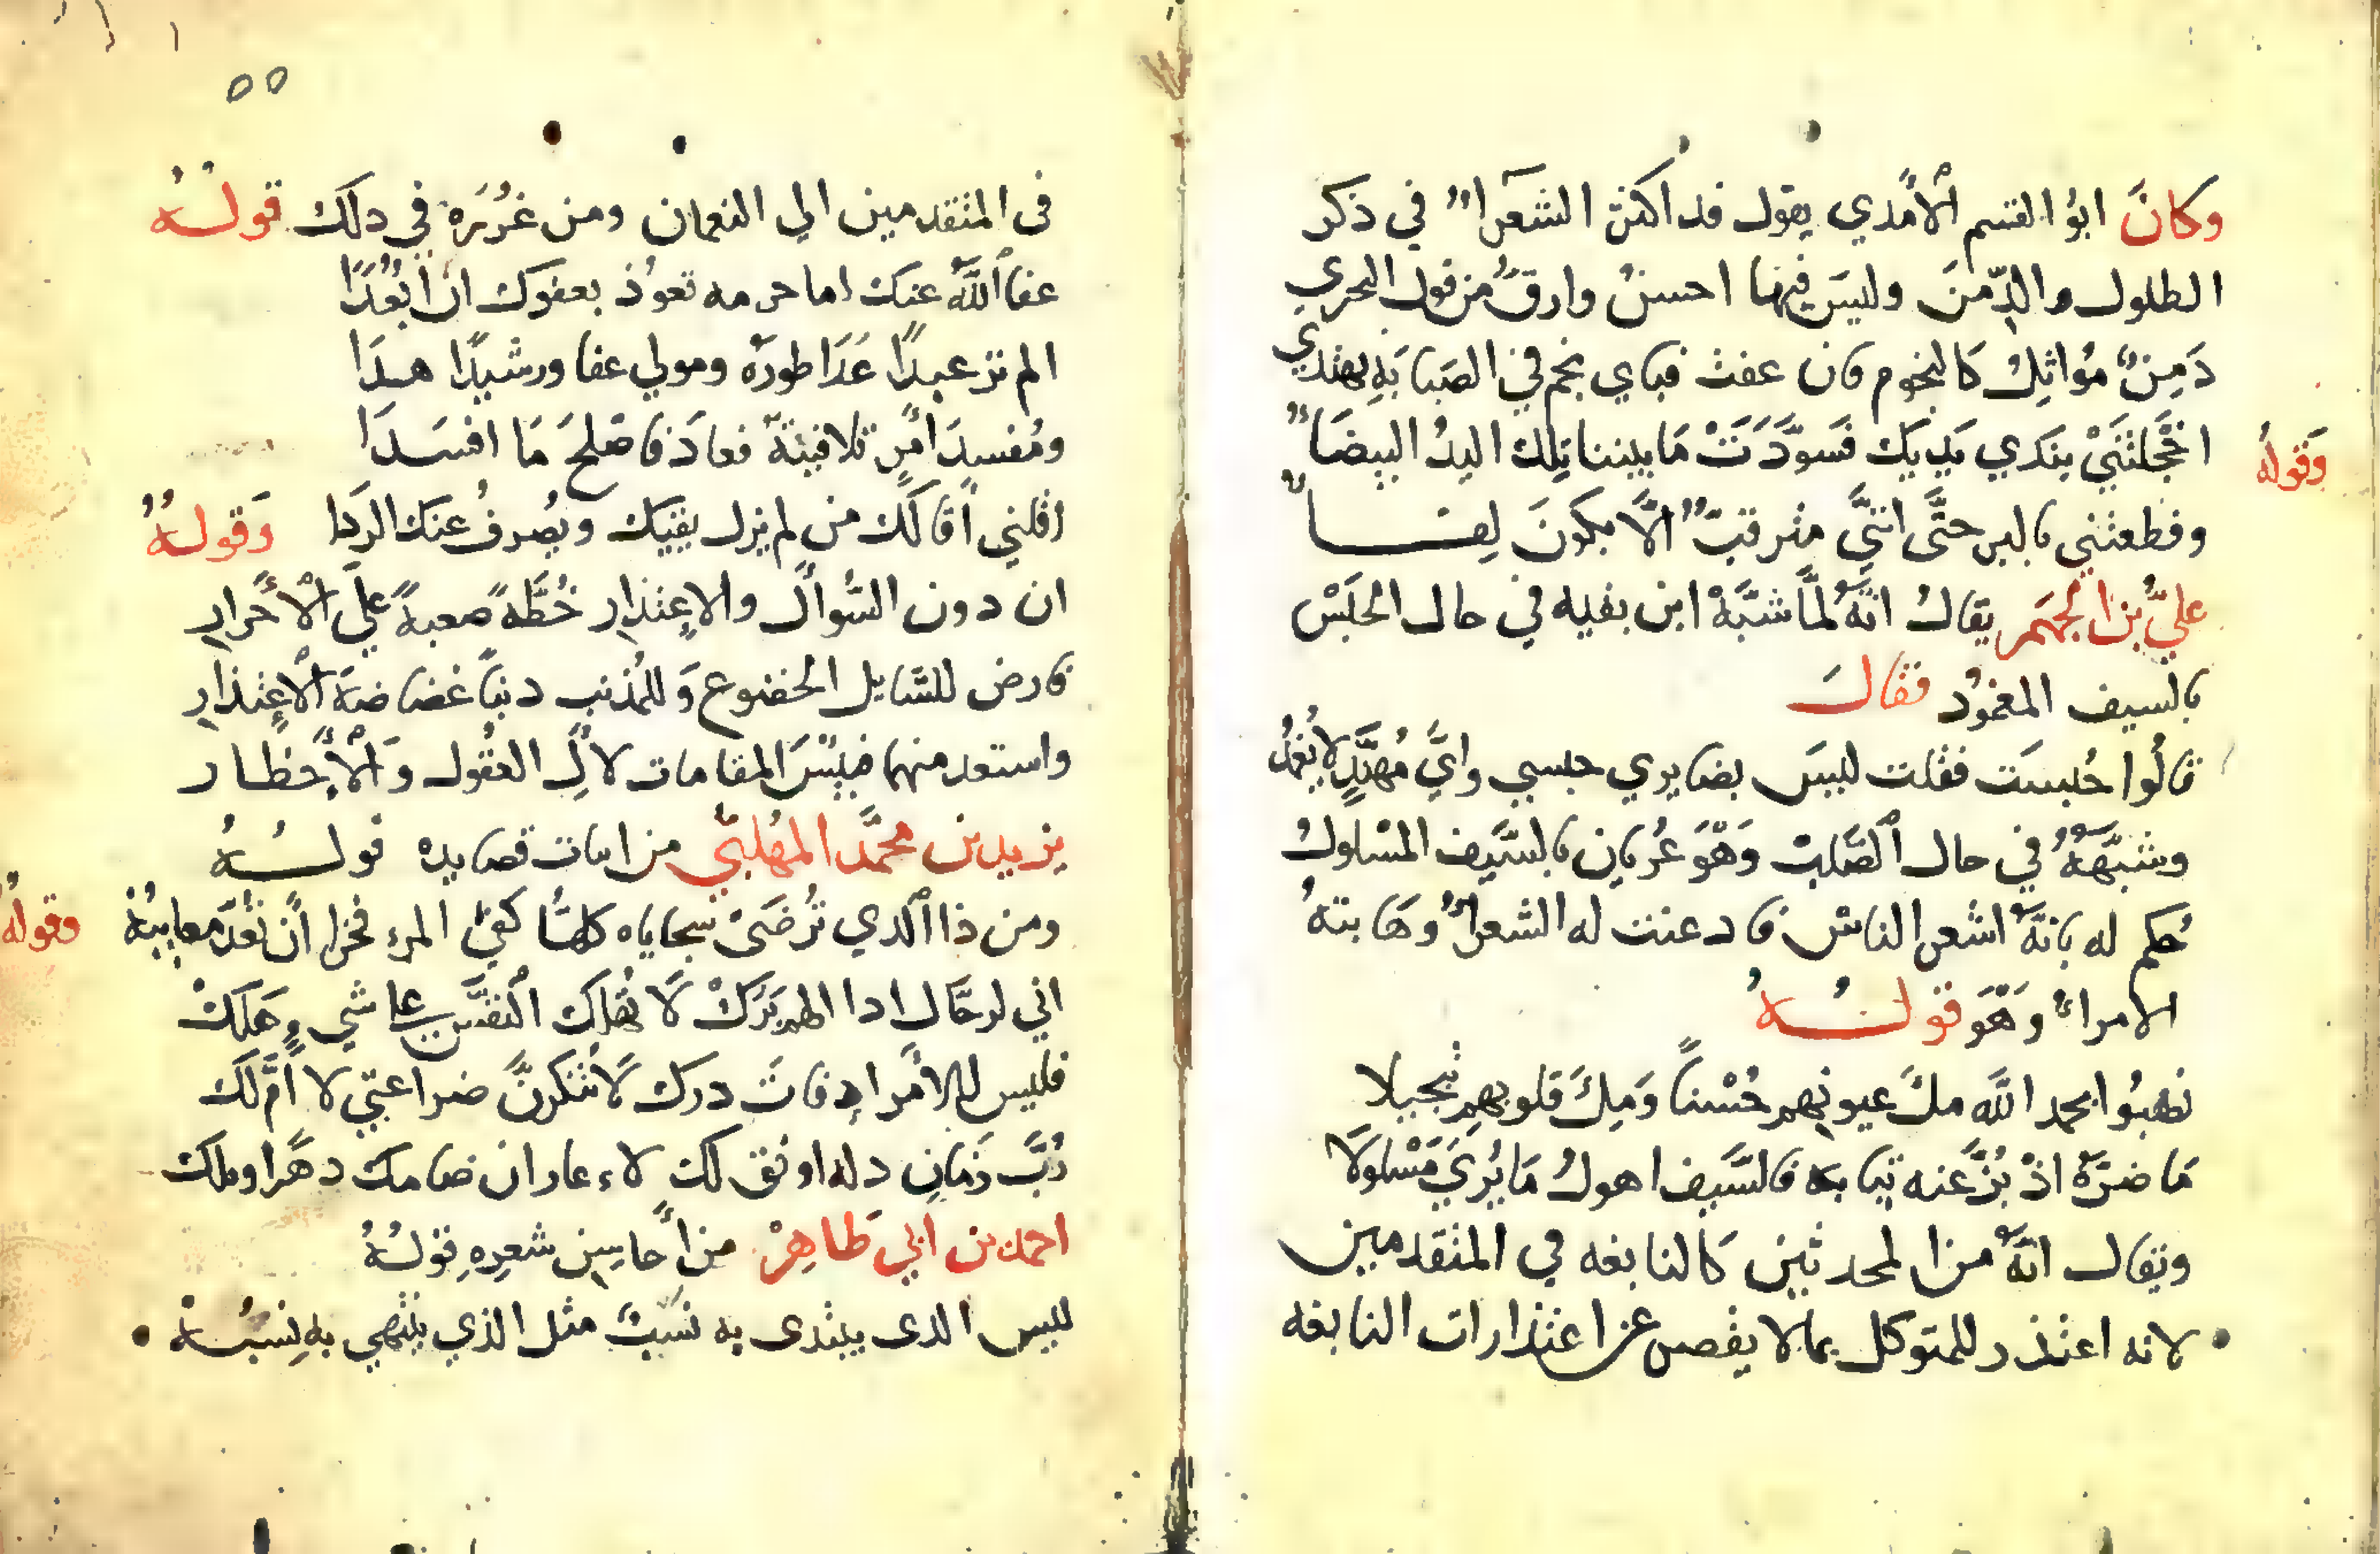 وكانَ ابوُ القسم الآمدي يقول قد اكثر الشعرآء في ذكر
الطلول والدِّمنَ وليسَ فيها احسنُ وارقُّ من قول البحتري
دَمِنٌ مُواثِلُ كالنجوم فان عفت فباي نجم في الصَبابَهِ يهتدي
وَقولهُ
اخْجَلتَنيْ بندَي يَديَك فسَوَّدَتْ مَا بيننا تِلك اليدُ البيضَاءُ
وقطعتني بالبر حتَّى انني مترقبٌ الَّا يكونَ لِقــاءُ
عليُّ بن الجهَم يقال انَّهُ لمَّا شبَّهْ ابن بقيه في حال الحَبَسْ
بالسيف المغمُود فقالَ
قالُوا حُبسَت فقلت ليسَ بضايري حبسي وايُّ مُهنَّدٍ لا يُغمُد
وشبَّههُ في حال الصَّلبِ وَهْوَ عُريان بالسَّيف المسْلول
حُكم له بانَّهُ اشعر الناس فادعنت له الشعراءُ وهَابتهُ
الامراءُ وَهْوَ قولــهُ
نصَبُوا بحمد اللَّه ملَْ عيونِهم حُسْناً وَملَِ قلوبهِم تبجيلا
مَا ضرَّهُ اذْ بُزَّ عنه ثيابه فالسَّيف اهولُ مَا يُريَ مَسْلولَا
ويقال انَّهُ من المحدثين كالنابغه في المتقدمين
لانه اعتذر للمتوكل بما لا يقصر عن اعتذارات النابغه
٥٥
في المتقدمين الي النعمان ومن غُرُرَه في دلك قولــهُ
عفا اللَّهُ عنك اما حرمه تعوُذ بعفوك ان اُبْعَدَا
الم تر عبدًا عَدَا طورَهُ ومولي عفا ورشيدًا هــدَا
ومُفسدَ امْرٍ تلافيتَهُ فعادَ فاصْلحَ مَا افسَــدَا
اقلني اَقالَكَ من لم يزل يقيك ويصُرفُ عنك الردَا وَقولــهُ
ان دون السُّوال والاعِتذار خُطَّهً صعبهً عليَ الْاَحْرارِ
فارض للسَّايل الخضوع وَللمُذنب دنباً غضاضهَ الاعِتذارِ
واستعد منهما فبِئْسَ المقامات لاُلِ العقُول وَالْاَخطــار
يزيد بن محمَّد المهُلبَّي من ابيات قصايده قولــهُ
ومن ذا الَّدي تُرضَىْ سجاياه كلهُّا كفيَ المرءَ فخرا اَن تُعَدَّ معايبُهْ وقولهُ
اني لرحَّال ادا الهم بَرَكْ لَا تُهلِك النفسَ علي شي هَلَكْ
فليس للاَمر ادِ فاتَ درك لَا تنكرنَّ ضراعتي لا اُمَّ لَك
رُبَّ زَمانِ دله اوفق لك لاءعار ان ضامك دهَرا وملك
احمد بن ابي طَاهِرْ من اَحاسِن شعرِهِ قولــهُ
ليس الدى يبتدى به نسَبٌ مثل الذي ينتهي به نِسَبُــهْ